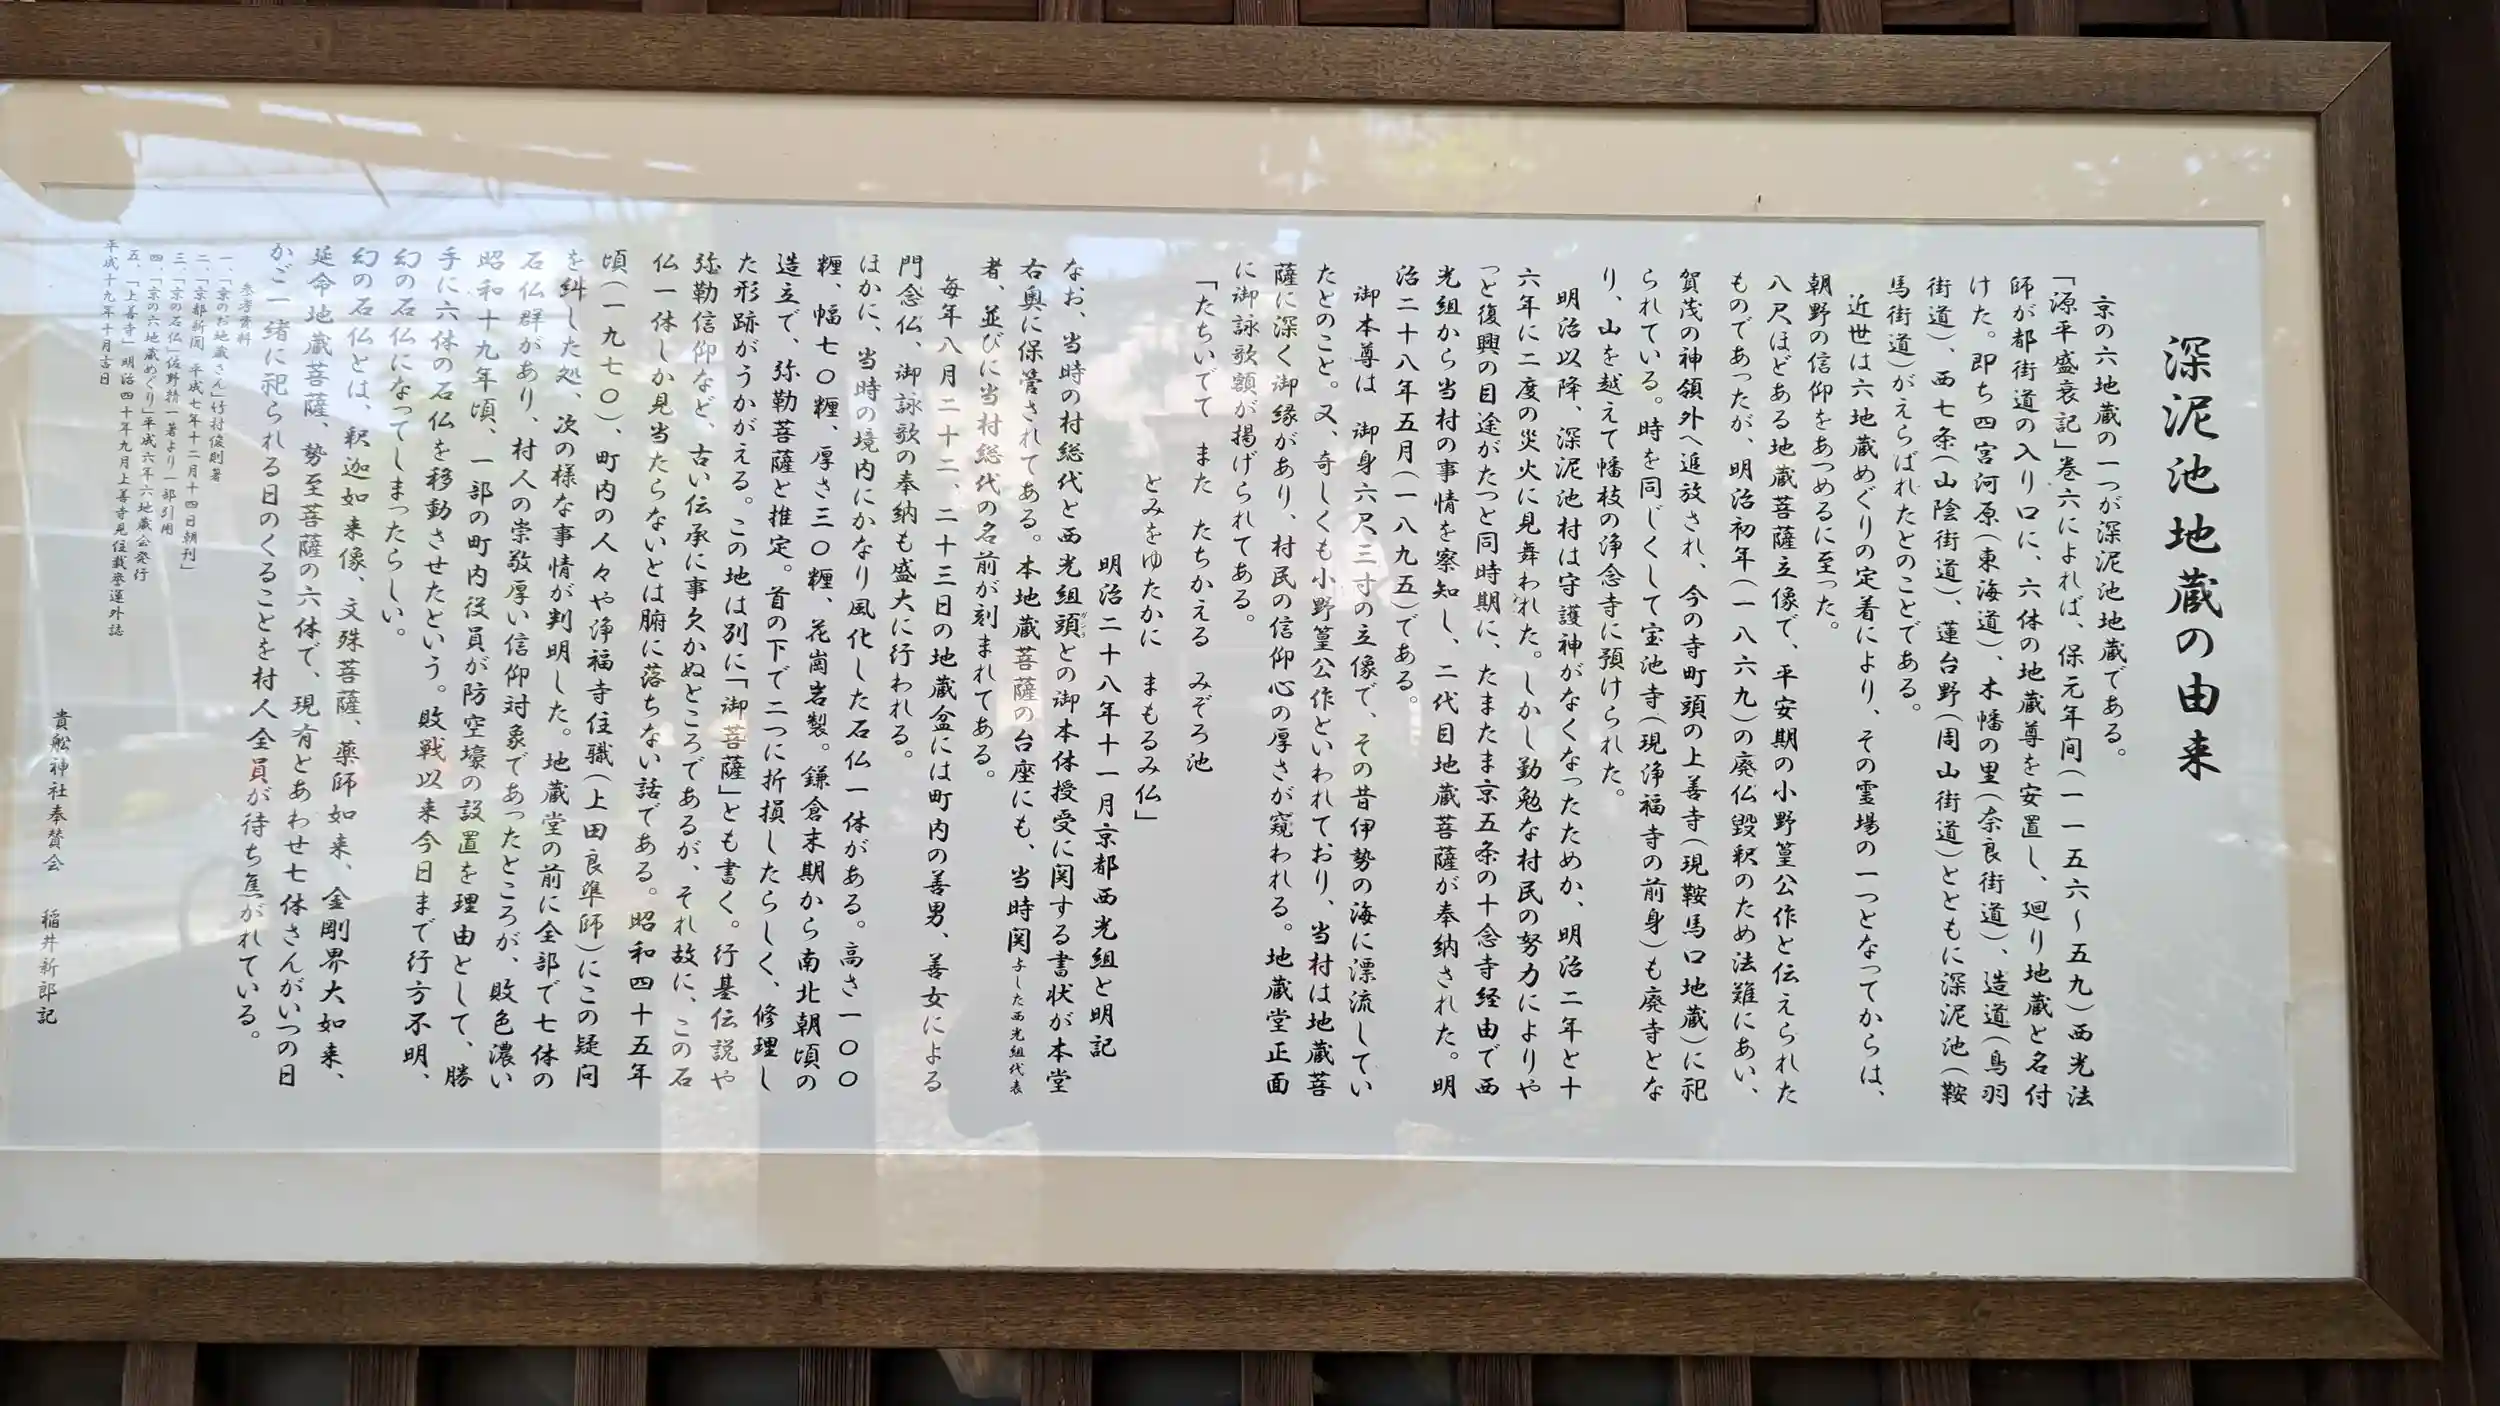 深泥池地蔵の由来
京の六地蔵の一つが深泥池地蔵である。
「源平盛衰記」巻六によれば、保元年间(一一五六~五九)西光法
師が都街道の入り口に、六体の地蔵尊を安置し、廻り地蔵と名付
けた。即ち四宮河原(東海道)、木幡の里(奈良街道)、造道(鳥羽
街道)、西七条(山陰街道)、蓮台野(周山街道)とともに深泥池(鞍
馬街道)がえらばれたとのことである。
近世は六地蔵めぐりの定着により、その霊場の一つとなってからは、
朝野の信仰をあつめるに至った。
八尺ほどある地蔵菩薩立像で、平安期の小野篁公作と伝えられた
ものであったが、明治初年(一八六九)の廃仏毀釈のため法難にあい、
賀茂の神領外へ追放され、今の寺町頭の上善寺(現鞍馬口地蔵)に祀
られている。時を同じくして宝池寺(現浄福寺の前身)も廃寺とな
り、山を越えて幡枝の浄念寺に預けられた。
明治以降、深泥池村は守護神がなくなったためか、明治二年と十
六年に二度の災火に見舞われた。しかし勤勉な村民の努力によりや
っと復興の目途がたつと同時期に、たまたま京五条の十念寺経由で西
光組から当村の事情を察知し、二代目地蔵菩薩が奉納された。明
治二十八年五月(一八九五)である。
御本尊は 御身六尺三寸の立像で、その昔伊勢の海に漂流してい
たとのこと。又、奇しくも小野篁公作といわれており、当村は地蔵菩
薩に深く御縁があり、村民の信仰心の厚さが窺われる。地蔵堂正面
に御詠歌額が掲げられてある。
「たちいでて また たちかえる みぞろ池
とみをゆたかに まもるみ仏」
明治二十八年十一月京都西光组と明記
なお、当時の村総代と西光組頭との御本体授受に関する書状が本堂
右奥に保管されてある。本地蔵菩薩の台座にも、当時関与した西光組代表
者、並びに当村総代の名前が刻まれてある。
毎年八月二十二、二十三日の地蔵盆には町内の善男、善女による
門念仏、御詠歌の奉納も盛大に行われる。
ほかに、当時の境内にかなり風化した石仏一体がある。高さ一〇〇
糎、幅七〇糎、厚さ三〇糎、花崗岩製。鎌倉末期から南北朝頃の
造立で、弥勒菩薩と推定。首の下で二つに折損したらしく、修理し
た形跡がうかがえる。この地は別に「御菩薩」とも書く。行基伝説や
弥勒信仰など、古い伝承に事欠かぬところであるが、それ故に、この石
仏一体しか見当たらないとは腑に落ちない話である。昭和四十五年
頃(一九七〇)、町内の人々や浄福寺住職(上田良準師)にこの疑问
を糾した処、次の様な事情が判明した。地蔵堂の前に全部で七体の
石仏群があり、村人の崇敬厚い信仰対象であったところが、敗色濃い
昭和十九年頃、一部の町内役員が防空壕の設置を理由として、勝
手に六体の石仏を移動させたという。敗戦以来今日まで行方不明、
幻の石仏になってしまったらしい。
幻の石仏とは、釈迦如来像、文殊菩薩、薬師如来、金剛界大如来、
延命地蔵菩薩、勢至菩薩の六体で、現有とあわせ七体さんがいつの日
かご一緒に祀られる日のくることを村人全員が待ち焦がれている。
参考資料
一、「京のお地蔵さん」竹村俊則著
二、「京都新聞」平成七年十二月十四日朝刊」
三、「京の石仏」佐野精一著より一部引用
四、「京の六地蔵めぐり」平成六年六地蔵会発行
五、「上善寺」明治四十年九月上善寺見住戴誉運外誌
平成十九年十月吉日
貴舩神社奉賛会 稲井新郎記